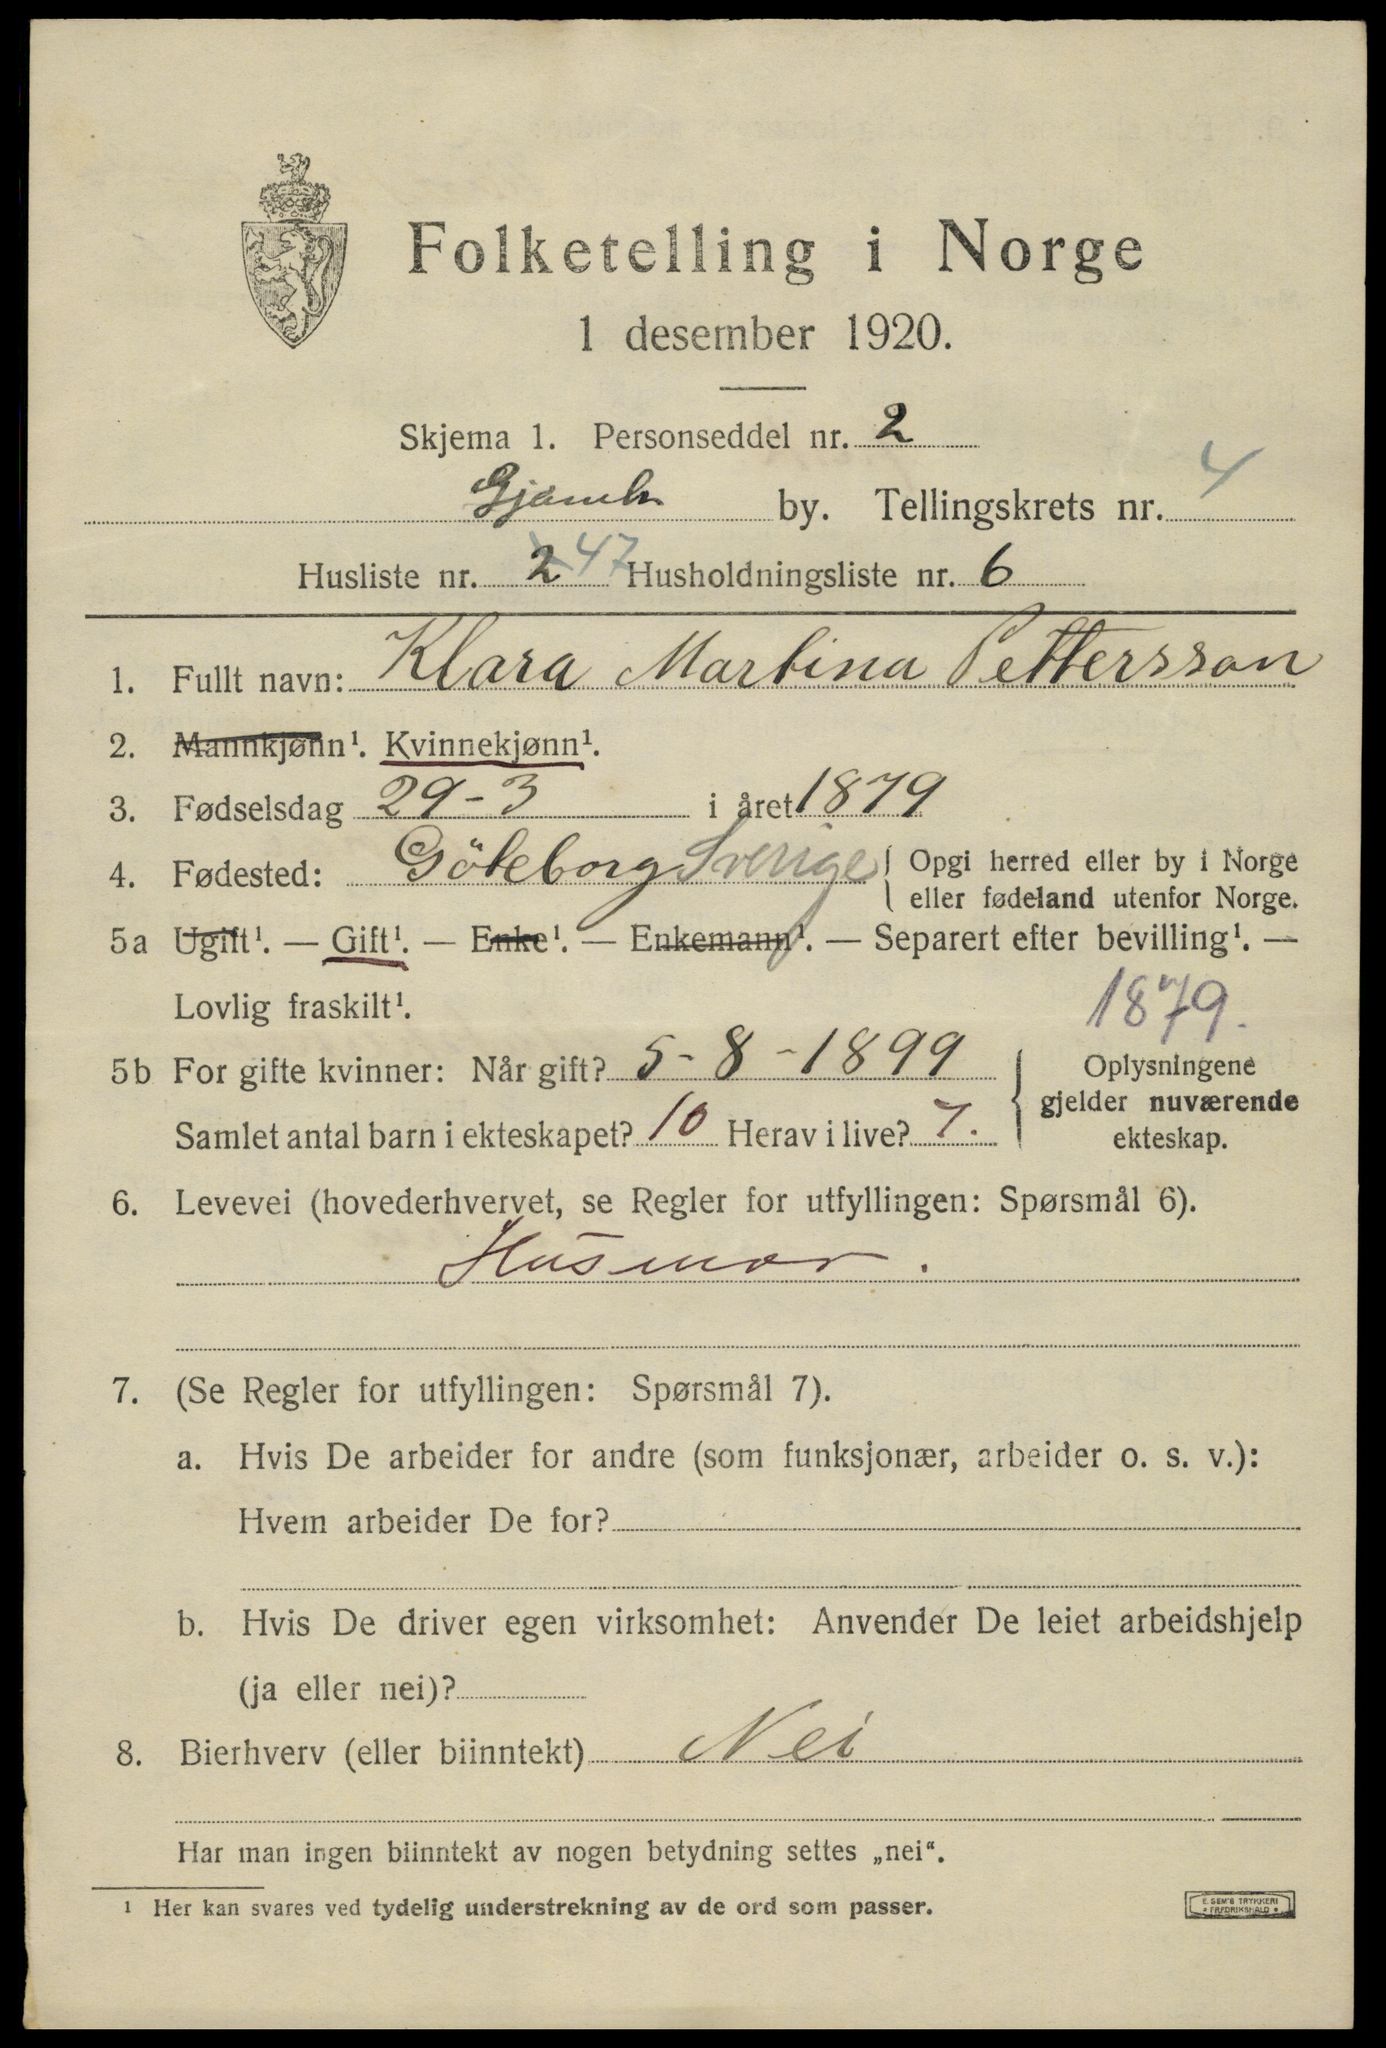 Folketelling i Norge
1 desember 1920.
Skjema 1. Personseddel nr. 2
by. Tellingskrets nr. 4
Husliste nr. 2 47 Husholdningsliste nr. 6
1. Fullt navn: Klara Martina Pettersson
2. Mannkjønn¹. Kvinnekjønn¹.
3. Fødselsdag 29-3 i året 1879
4. Fødested: Göteborg Sverige { Opgi herred eller by i Norge
eller fødeland utenfor Norge.
5a Ugift¹. — Gift¹. — Enke¹. — Enkemann¹. — Separert efter bevilling¹. —
Lovlig fraskilt¹.
1879.
5b For gifte kvinner: Når gift? 5-8-1899
Samlet antal barn i ekteskapet? 10 Herav i live? 7.
{ Oplysningene
gjelder nuværende
ekteskap.
6. Levevei (hovederhvervet, se Regler for utfyllingen: Spørsmål 6).
Husmor.
7. (Se Regler for utfyllingen: Spørsmål 7).
a. Hvis De arbeider for andre (som funksjonær, arbeider o. s. v.):
Hvem arbeider De for?
b. Hvis De driver egen virksomhet: Anvender De leiet arbeidshjelp
(ja eller nei)?
8. Bierhverv (eller biinntekt) Nei
Har man ingen biinntekt av nogen betydning settes „nei“.
¹ Her kan svares ved tydelig understrekning av de ord som passer.
E. SEM'S TRYKKERI
* FREDRIKSHALD *